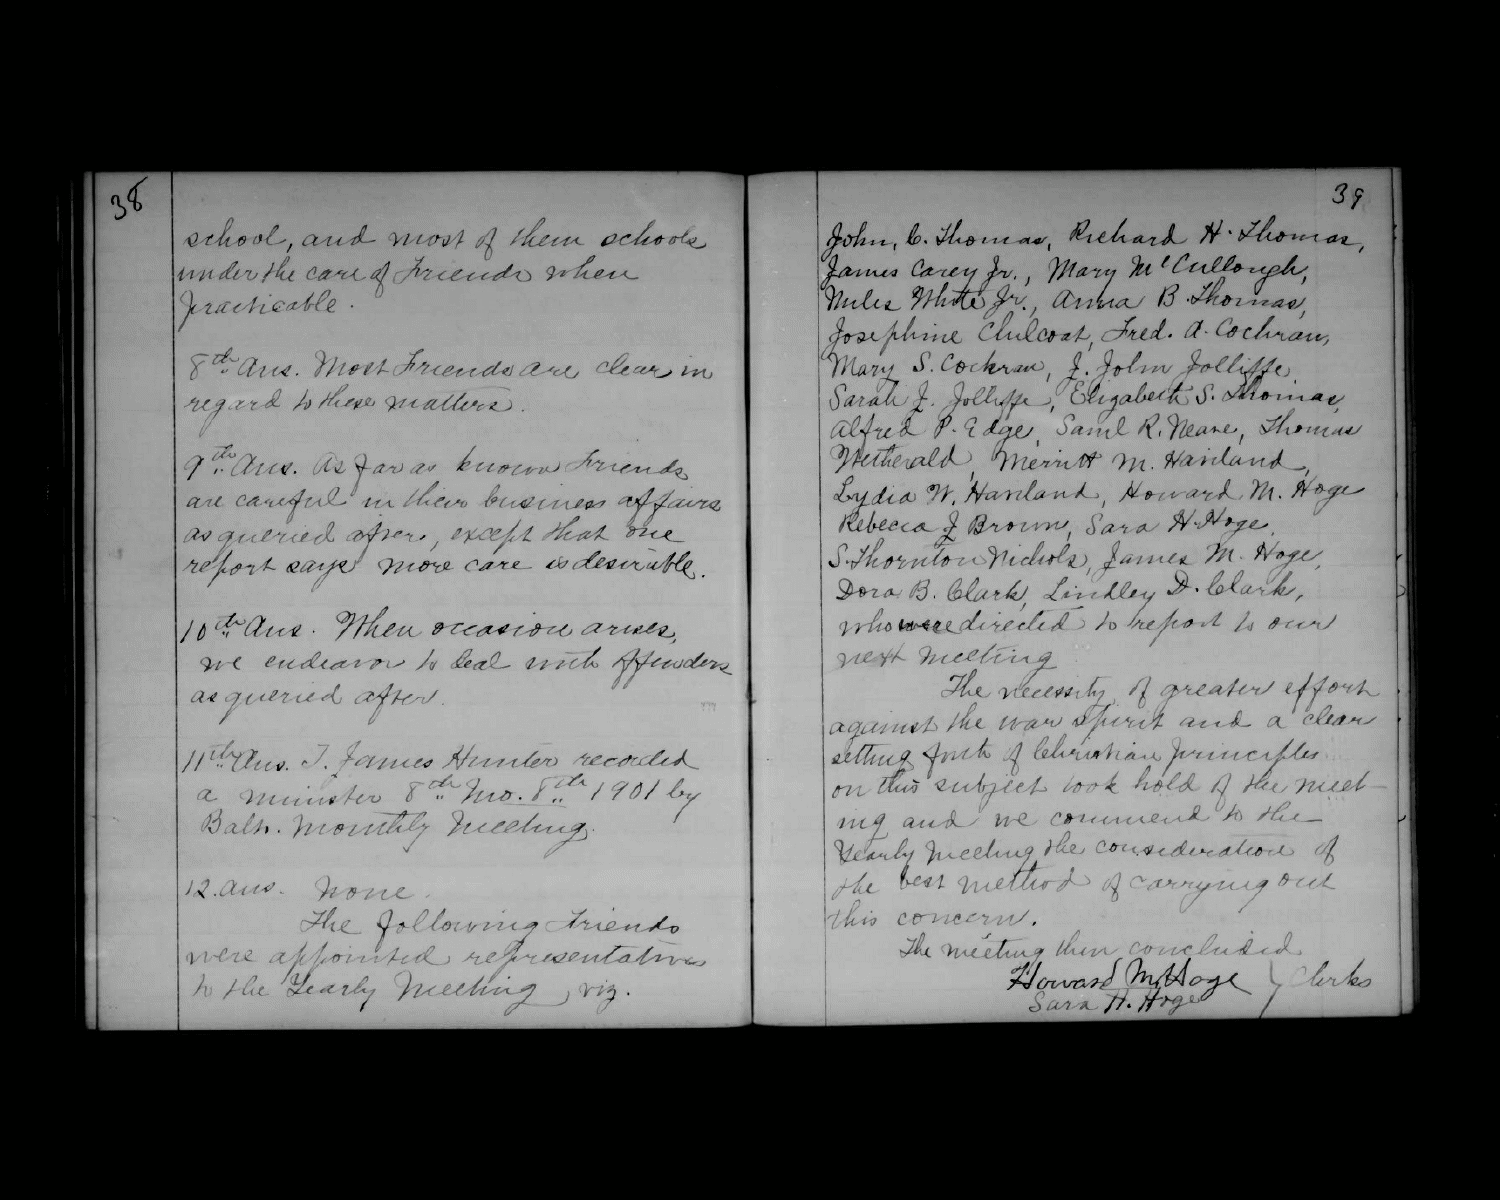 38
school, and most of them schools
under the care of Friends when
practicable.
8th Ans. Most Friends are clear in
regard to these matters.
9th Ans. As far as known Friends
are careful in their business affairs
as queried after, except that one
report says more care is desirable.
10th Ans. When occasion arises,
we endeavor to deal with offenders
as queried after.
11th Ans. T. James Hunter recorded
a minister 8th Mo. 8th 1901 by
Balto. Monthly Meeting.
12. Ans. None.
The following Friends
were appointed representatives
to the Yearly Meeting, viz.
39
John, C. Thomas, Richard H. Thomas,
James Carey Jr., Mary McCullough,
Miles White Jr., Anna B. Thomas,
Josephine Chilcoat, Fred. A. Cochran,
Mary S. Cochran, J. John Jolliffe
Sarah J. Jolliffe, Elizabeth S. Thomas,
Alfred P. Edge, Saml R. Neave, Thomas
Wetherald, Merritt M. Haviland,
Lydia W. Haviland, Howard M. Hoge
Rebecca J Brown, Sara H. Hoge,
S. Thornton Nichols, James M. Hoge,
Dora B. Clark, Lindley D. Clark,
who were directed to report to our
next meeting
The necessity of greater effort
against the war spirit and a clear
setting forth of Christian principles
on this subject took hold of the meet-
ing and we commend to the
Yearly Meeting the consideration of
the best method of carrying out
this concern.
The meeting then concluded
Howard M. Hoge } Clerks
Sara H. Hoge